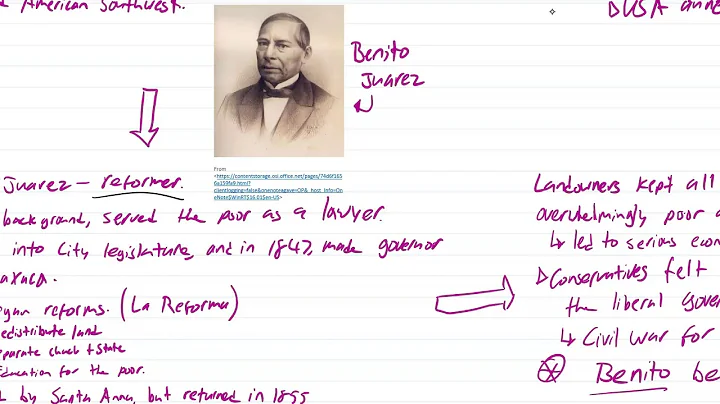 American Southwest.
Benito
Juarez
From
<https://contentstorage.osi.office.net/pages/74d6f165
6a159fa9.html?
clientlogging=false&onenoteagave=OP&_host_Info=On
eNote$WinRT$16.01$en-US>
Juarez - reformer.
background, served the poor as a lawyer.
into City legislature, and in 1847, made governor
reforms. (La Reforma)
edistribute land
eparate church + State
Education for the poor.
by Santa Anna, but returned in 1855
DUSA anne
Landowners kept all
overwhelmingly poor
↳ led to serious econ
Conservatives felt
the liberal gover
↳ Civil war for
Benito be